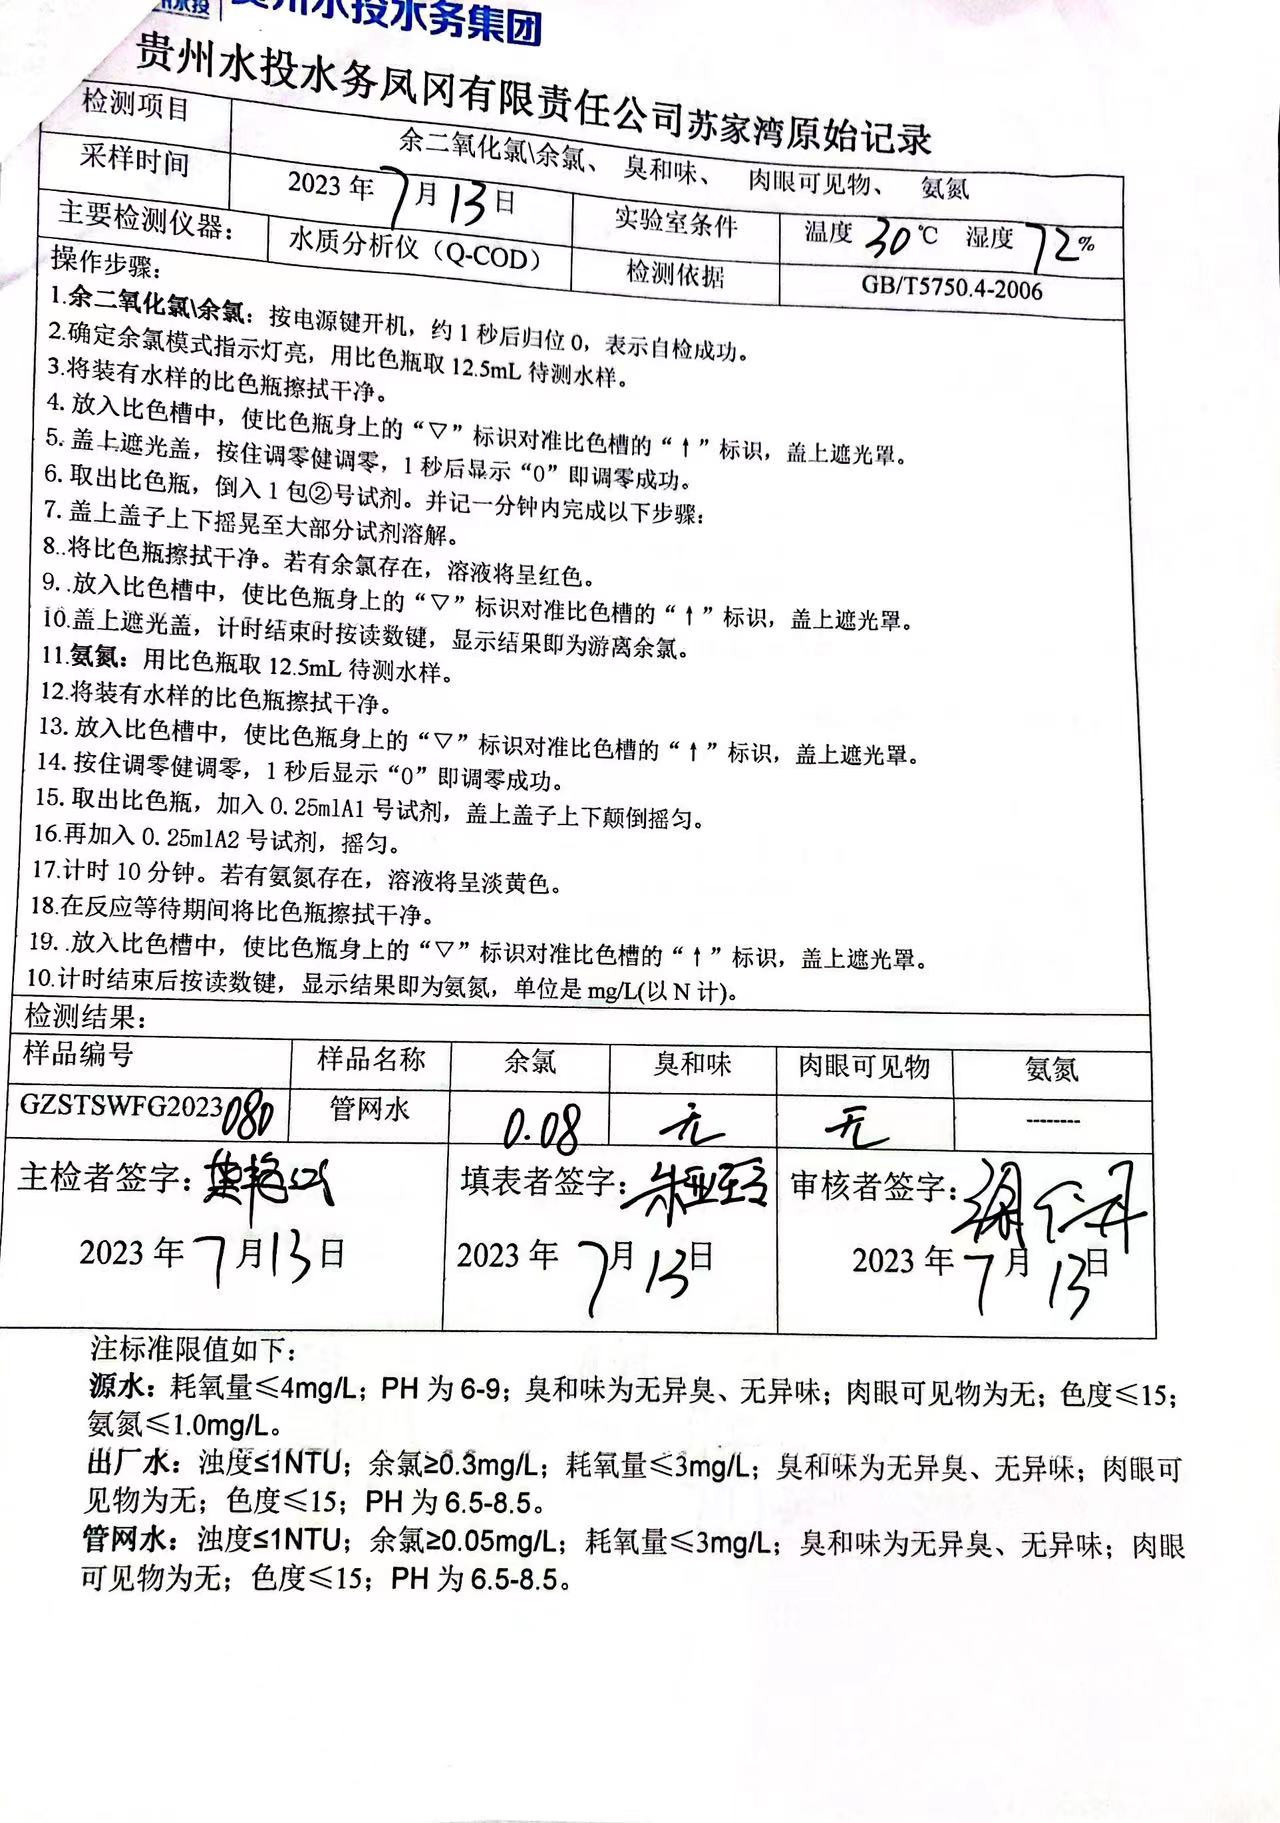 贵州水投水务集团
贵州水投水务凤冈有限责任公司苏家湾原始记录
检测项目 余二氧化氯\余氯、 臭和味、 肉眼可见物、 氨氮
采样时间 2023 年 7 月 13 日 实验室条件 温度 30 ℃ 湿度 72 %
主要检测仪器: 水质分析仪（Q-COD） 检测依据 GB/T5750.4-2006
操作步骤:
1.余二氧化氯\余氯：按电源键开机，约 1 秒后归位 0，表示自检成功。
2.确定余氯模式指示灯亮，用比色瓶取 12.5mL 待测水样。
3.将装有水样的比色瓶擦拭干净。
4. 放入比色槽中，使比色瓶身上的“▽”标识对准比色槽的“↑”标识，盖上遮光罩。
5. 盖上遮光盖，按住调零健调零，1 秒后显示“0”即调零成功。
6. 取出比色瓶，倒入 1 包②号试剂。并记一分钟内完成以下步骤:
7. 盖上盖子上下摇晃至大部分试剂溶解。
8..将比色瓶擦拭干净。若有余氯存在，溶液将呈红色。
9. .放入比色槽中，使比色瓶身上的“▽”标识对准比色槽的“↑”标识，盖上遮光罩。
10.盖上遮光盖，计时结束时按读数键，显示结果即为游离余氯。
11.氨氮：用比色瓶取 12.5mL 待测水样。
12.将装有水样的比色瓶擦拭干净。
13. 放入比色槽中，使比色瓶身上的“▽”标识对准比色槽的“↑”标识，盖上遮光罩。
14. 按住调零健调零，1 秒后显示“0”即调零成功。
15. 取出比色瓶，加入 0.25mlA1 号试剂，盖上盖子上下颠倒摇匀。
16.再加入 0.25mlA2 号试剂，摇匀。
17.计时 10 分钟。若有氨氮存在，溶液将呈淡黄色。
18.在反应等待期间将比色瓶擦拭干净。
19. .放入比色槽中，使比色瓶身上的“▽”标识对准比色槽的“↑”标识，盖上遮光罩。
10.计时结束后按读数键，显示结果即为氨氮，单位是 mg/L(以 N 计)。
检测结果:
样品编号 样品名称 余氯 臭和味 肉眼可见物 氨氮
GZSTSWFG2023080 管网水 0.08 无 无 --------
主检者签字: 填表者签字: 审核者签字:
2023 年 7 月 13 日 2023 年 7 月 13 日 2023 年 7 月 13 日
注标准限值如下:
源水：耗氧量≤4mg/L；PH 为 6-9；臭和味为无异臭、无异味；肉眼可见物为无；色度≤15；
氨氮≤1.0mg/L。
出厂水：浊度≤1NTU；余氯≥0.3mg/L；耗氧量≤3mg/L；臭和味为无异臭、无异味；肉眼可
见物为无；色度≤15；PH 为 6.5-8.5。
管网水：浊度≤1NTU；余氯≥0.05mg/L；耗氧量≤3mg/L；臭和味为无异臭、无异味；肉眼
可见物为无；色度≤15；PH 为 6.5-8.5。